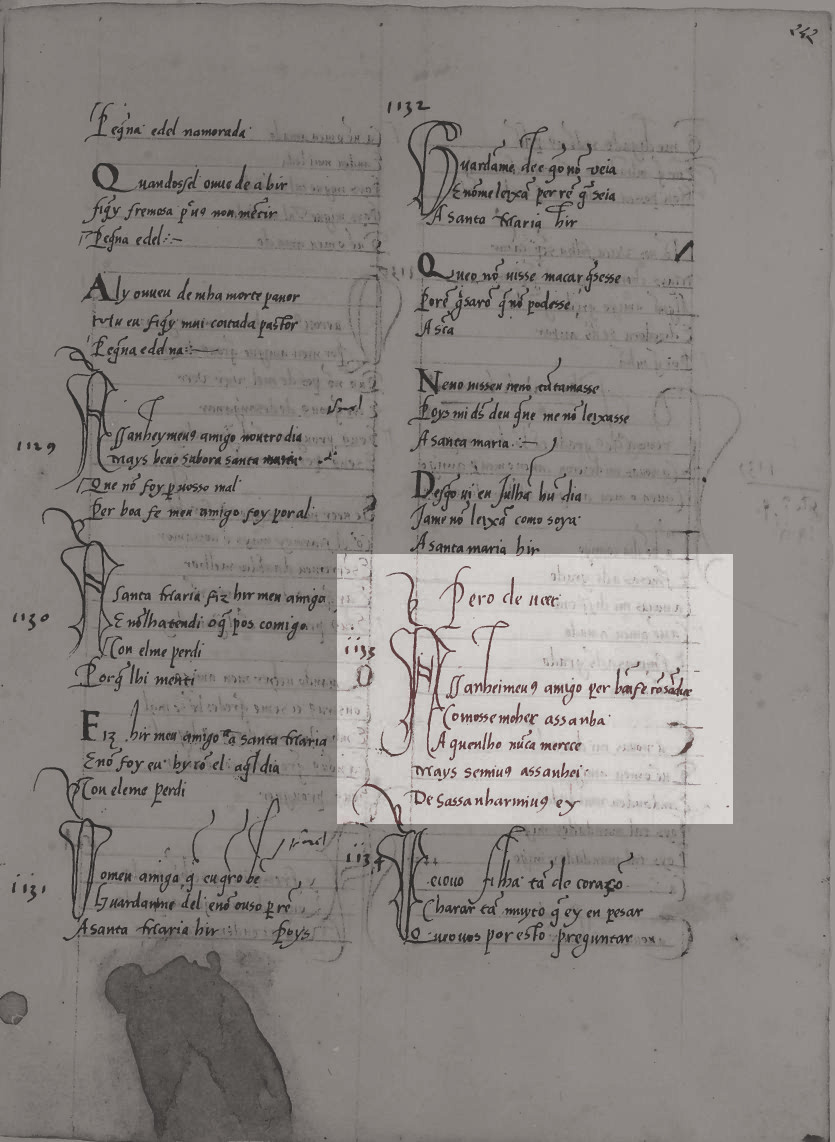 242
Pegña edel namorada
Quandossel ouue de a bir
fiq̃y fremosa pr uꝯ non mẽtir
Pegña edel:~
Aly ouueu de mha morte pauor
hu eu fiq̃y mui coitada pastor
Pegña edel na:~
1129
Assanheymeuꝯ amigo noutro dia
Mays beno sabora santa maria
Que nõ foy p̱ uosso mal
Per boa fe meu amigo foy por al
1130
A Santa Maria fiz hir meu amigo
E nõlhatendi o q̃ pos comigo
Con elme perdi
Porq̃ lhi menti
Fiz hir meu amigo a santa Maria
E nõ foy eu hy cõ el aq̃l dia
Con eleme perdi
1131
Do meu amigo q̃ eu q̃ro bẽ
Guardanme del e nõ ouso p̱ rẽ
A santa Maria hir
Poys
1132
Guardãme, de e go nõ veia
E nõme leixã per rẽ q̃ seia
A santa Maria hir
Queo nõ uisse macar q̃sesse
Porẽ g̃sarõ q̃ nõ podesse
A sc̃a
Neno uisseu neno tãtamasse
Poys mi ds̃ deu q̃ne me nõ leixasse
A santa maria :~
Desq̃o ui en Julhã hũ dia
Jame nõ leixã como soya
A santa maria hir
Pero de ueer
1133
Assanheimeuꝯ amigo per bõafe cõ sãdiçe
Comosse moher assanha
A quenlho nũca merece
Mays semiuꝯ assanhei
Desassanharmiuꝯ ey
1134
Veiouo filha tã de coraçõ
Charar tã muyto q̃ ey en pesar
Q ueouos por esto preguntar